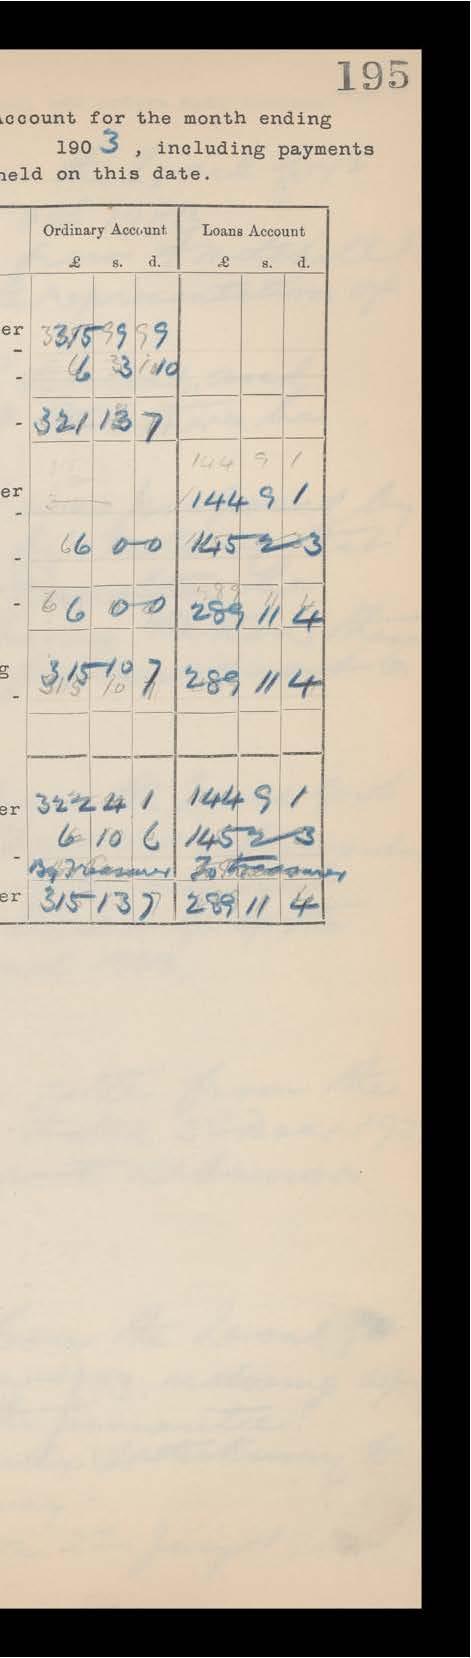 195
Account for the month ending
1903, including payments
held on this date.
Ordinary Account Loans Account
£ s. d. £ s. d.
er 315 9 9
-
- 6 3 10
- 321 13 7
144 9 1
er 144 9 1
-
- 6 0 0 145 2 3
- 6 6 0 0 289 11 4
g 315 10 7 289 11 4
-
er 322 4 1 144 9 1
6 10 6 145 2 3
-
By Treasurer To Treasurer
er 315 13 7 289 11 4